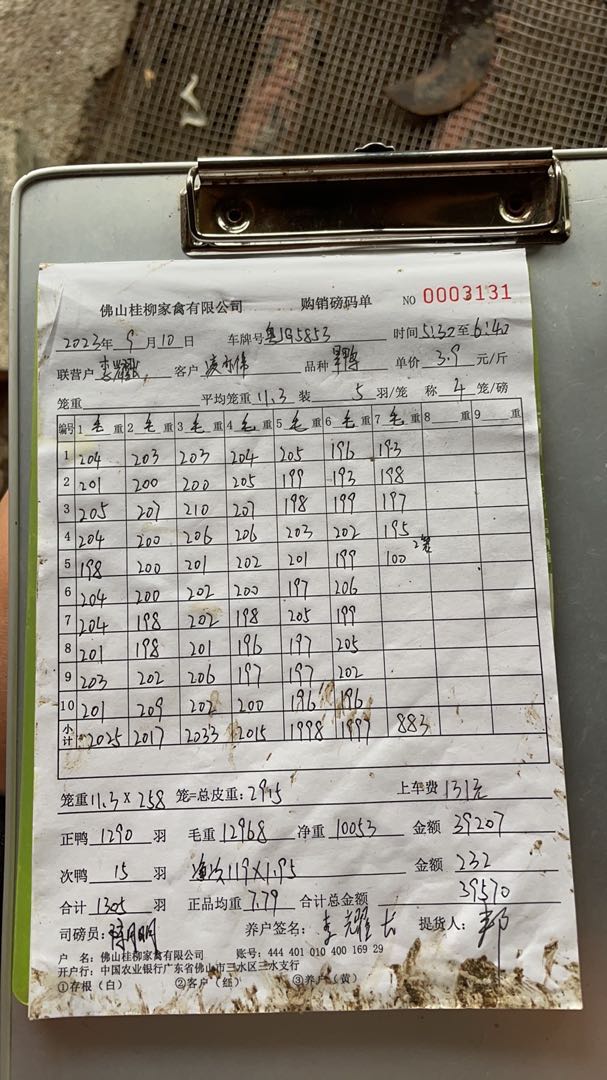 佛山桂柳家禽有限公司 购销磅码单 NO 0003131
2023年 9月10日 车牌号 粤JG5853 时间 5:30至6:40
联营户 李耀 客户 品种 单价 3.9 元/斤
笼重 平均笼重 11.3 装 5 羽/笼 称 4 笼/磅
编号 1 毛 重 2 毛 重 3 毛 重 4 毛 重 5 毛 重 6 毛 重 7 毛 重 8 重 9 重
1 204 203 203 204 205 196 193
2 201 200 200 205 199 193 198
3 205 207 210 207 198 199 197
4 204 200 206 206 203 202 195
5 198 200 201 202 201 199 100 2笼
6 204 200 202 200 197 206
7 204 198 202 198 205 199
8 201 198 201 196 197 205
9 203 202 206 197 197 202
10 201 209 202 200 196 196
小计 2025 2017 2033 2015 1998 1997 883
笼重 11.3 × 258 笼=总皮重: 2915 上车费 131元
正鸭 1290 羽 毛重 12968 净重 10053 金额 39207
次鸭 15 羽 次119×1.95 金额 232
合计 1305 羽 正品均重 7.79 合计总金额 39570
司磅员: 养户签名: 李耀长 提货人: 邦
户 名: 佛山桂柳家禽有限公司 账号: 444 401 010 400 169 29
开户行: 中国农业银行广东省佛山市三水区三水支行
①存根（白） ②客户（红） ③养户（黄）